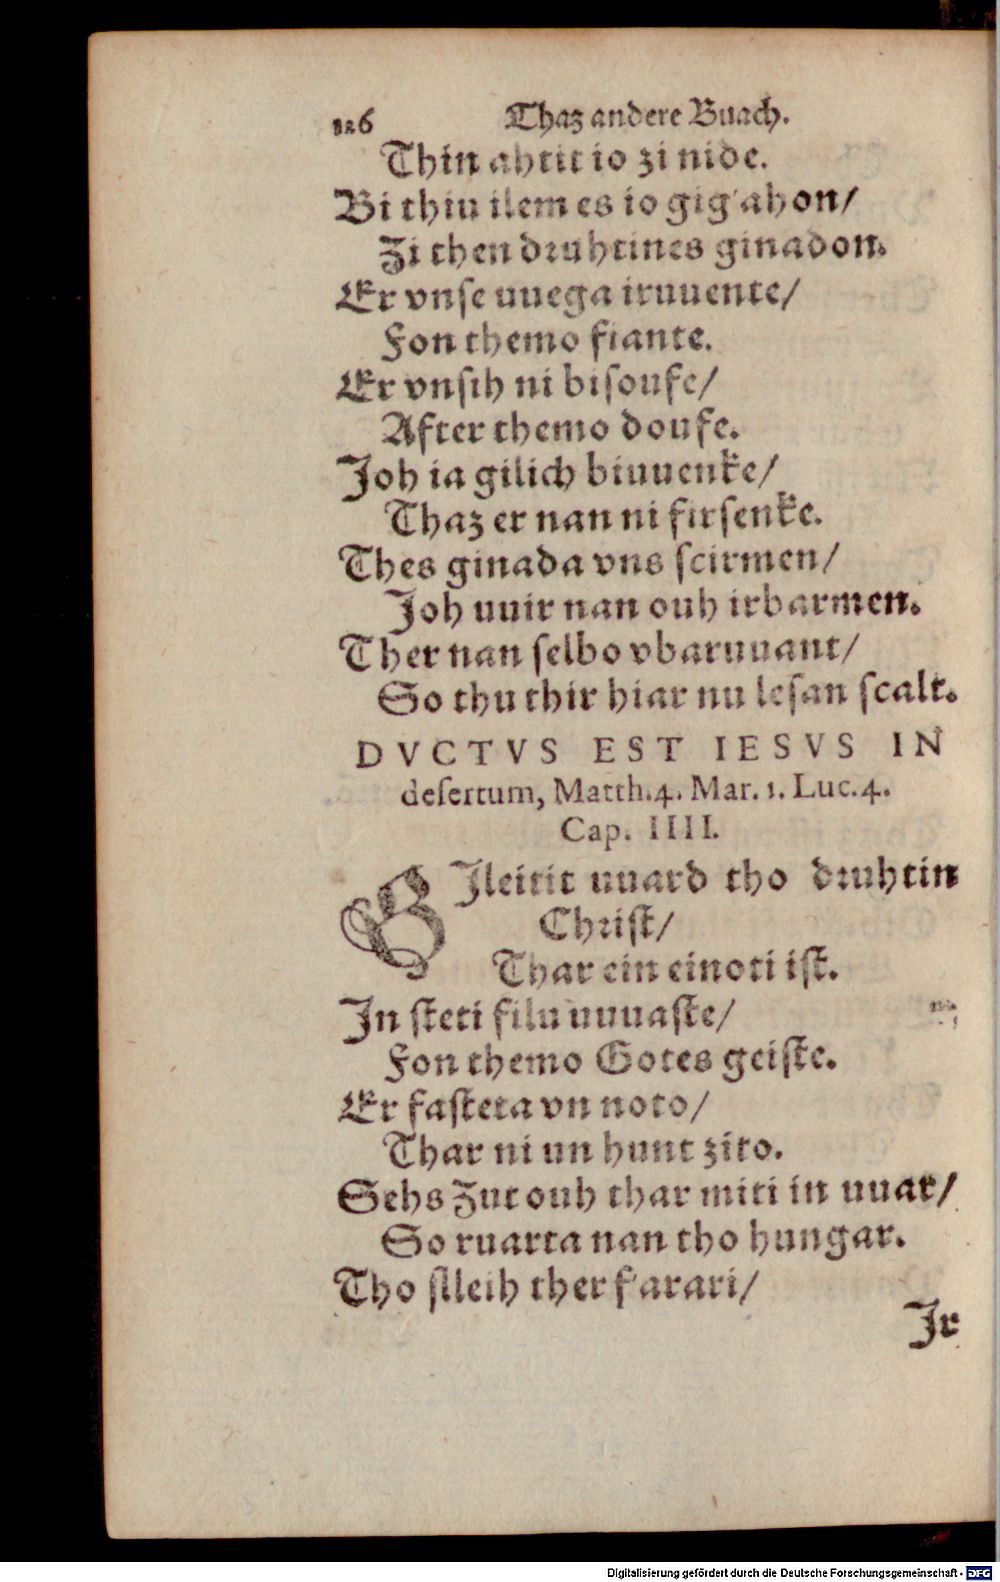 126 Thaz andere Buach.
Thin ahtit io zi nide.
Bi thiu ilem es io gigahon/
Zi then druhtines ginadon.
Er vnse uuega iruuente/
Fon themo fiante.
Er vnsih ni bisoufe/
After themo doufe.
Joh ia gilich biuuenke/
Thaz er nan ni firsenke.
Thes ginada vns scirmen/
Joh uuir nan ouh irbarmen.
Ther nan selbo vbaruuant/
So thu thir hiar nu lesan scalt.
DVCTVS EST IESVS IN
desertum, Matth.4. Mar.1. Luc.4.
Cap. IIII.
GJleitit uuard tho druhtin
Christ/
Thar ein einoti ist.
Jn steti filu uuuaste/
Fon themo Gotes geiste.
Er fasteta vn noto/
Thar ni un hunt zito.
Sehs Zut ouh thar miti in uuar/
So ruarta nan tho hungar.
Tho slleih ther farari/
Jr
Digitalisierung gefördert durch die Deutsche Forschungsgemeinschaft - DFG